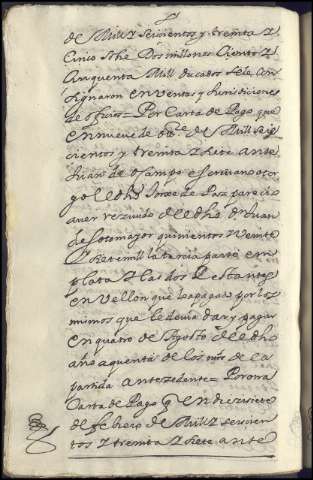 de Mill y seiscientos y treinta y
Cinco sobre Dos millones Ciento y
Cinquenta Mill ducados se le con
signaron en Ventas y Jurisdiciones
de oficios = Por Carta de Pago que
en nueve de de Mill seis
cientos y treinta y siete ante
Juan de ocampo escrivano otor
go el dho Jorge de Paz parecio
aver rezivido del dho Dn Juan
de Sotomayor quinientos y Veinte
y siete mill la tercia parte em
plata y las dos Restantes
en Vellon que le apagar por los
mismos que le devia dar y pagar
en quatro de Agosto del dho
año a quenta de los mrs de la
partida antezedente = Por otra
Carta de Pago q en diez y siete
de febrero de Mill y seiscien
tos y treinta y siete ante